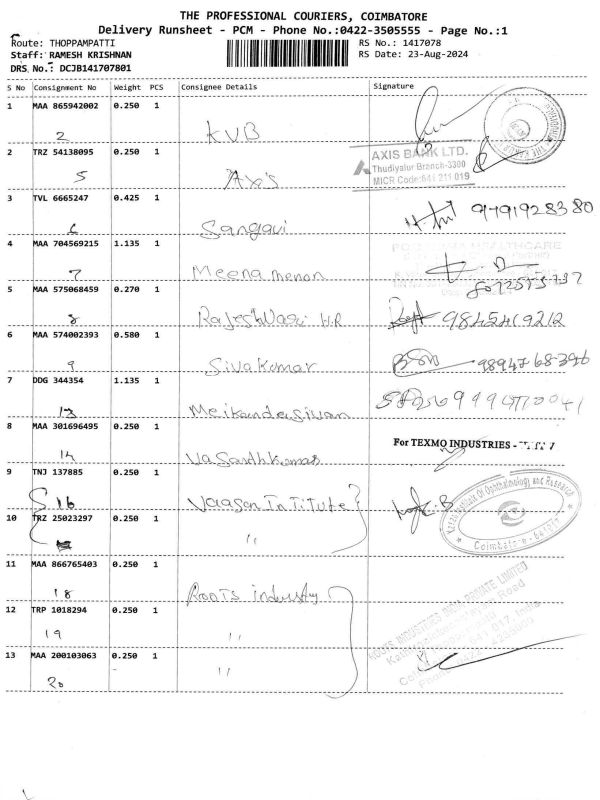 THE PROFESSIONAL COURIERS, COIMBATORE
Delivery Runsheet - PCM - Phone No.:0422-3505555 - Page No.:1
Route: THOPPAMPATTI
RS No.: 1417078
Staff: RAMESH KRISHNAN
RS Date: 23-Aug-2024
DRS No.: DCJB141707801
S No Consignment No Weight PCS Consignee Details Signature
1 MAA 865942002 0.250 1
2 KVB
2 TRZ 54138095 0.250 1
AXIS BANK LTD.
Thudiyalur Branch-3300
MICR Code:641 211 019
5 Axis
3 TVL 6665247 0.425 1
6 Sangavi
4 MAA 704569215 1.135 1
7 Meena menon
5 MAA 575068459 0.270 1
8 Rajeshwari H.R 9845419212
6 MAA 574002393 0.580 1
9 Siva Kumar
7 DDG 344354 1.135 1
13 Meikandasivan
8 MAA 301696495 0.250 1
For TEXMO INDUSTRIES -
14 Vasandhkumar
9 TNJ 137885 0.250 1
16 Vaasan Intitute
10 TRZ 25023297 0.250 1
"
Institute Of Ophthalmology and Research
Coimbatore - 641017
11 MAA 866765403 0.250 1
18 Roots industry
ROOTS INDUSTRIES INDIA PRIVATE LIMITED
12 TRP 1018294 0.250 1
19 "
13 MAA 200103063 0.250 1
"
20